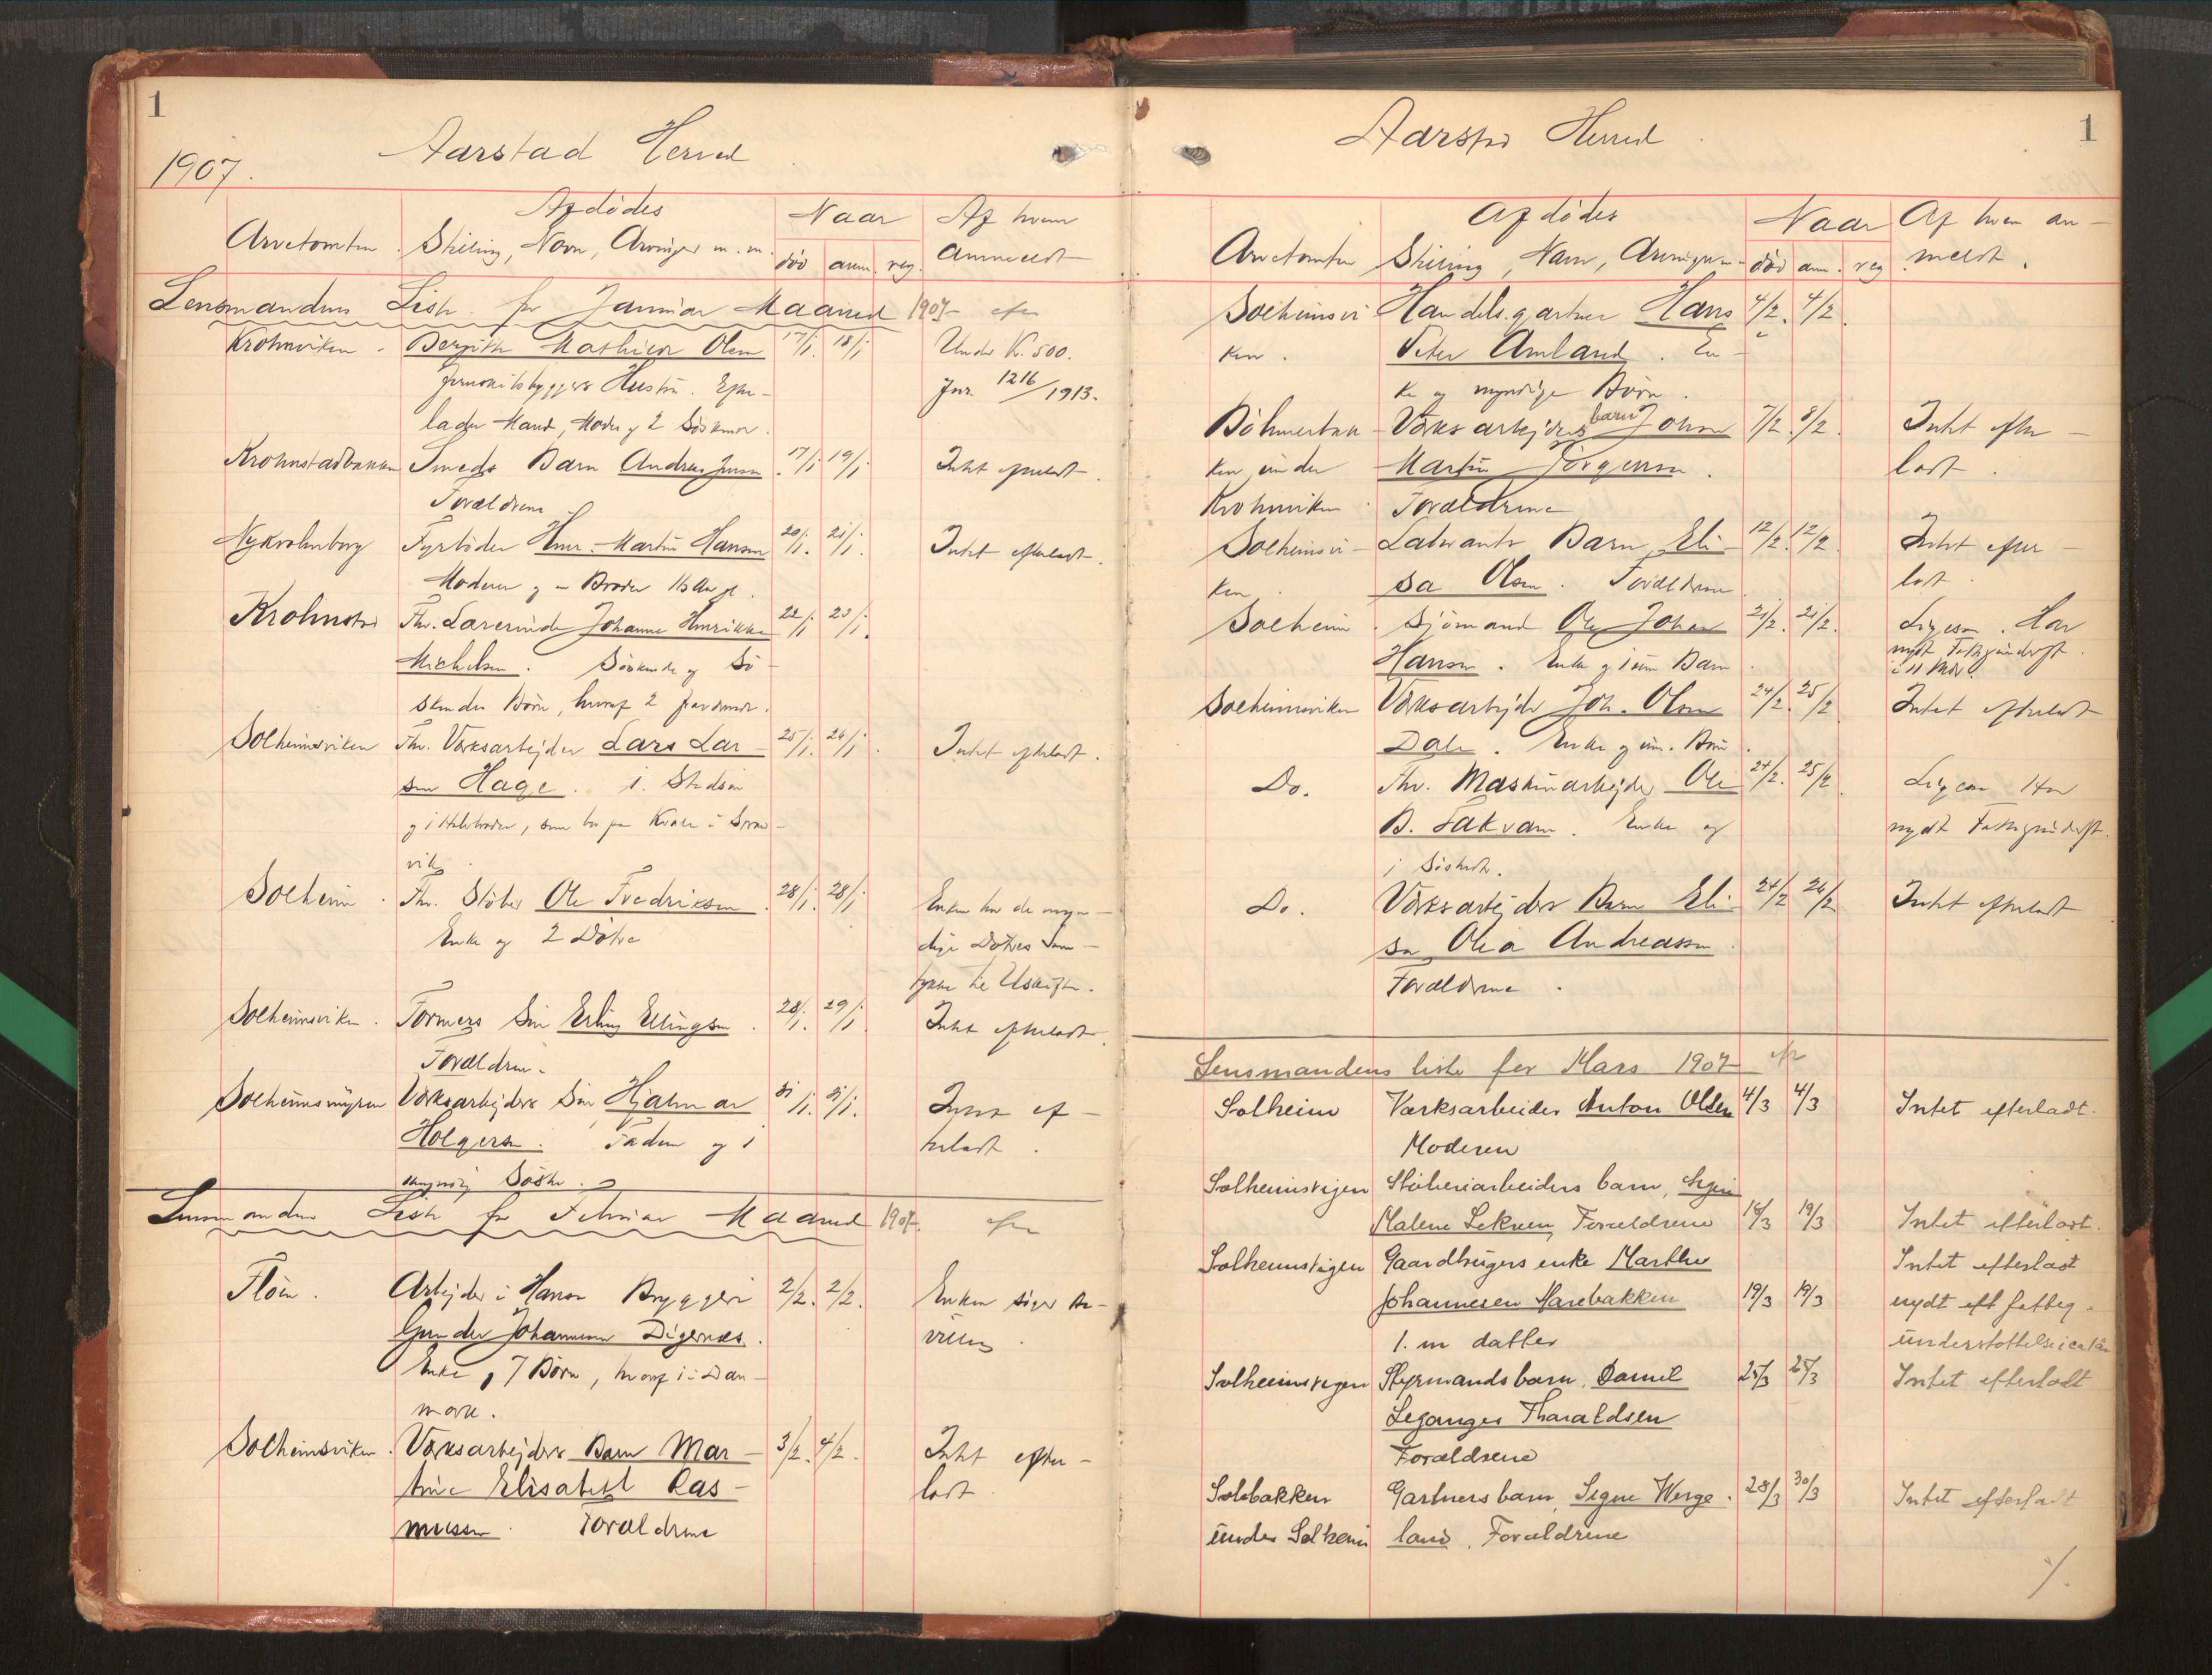 1
Aarstad Herred
1907.
Afdødes
Naar
Af hvem
Arvetomten
Stilling, Navn, Arvinger m.m.
død
anm.
reg.
anmeldt
Lensmandens Liste for Januar Maaned 1907
Krohnviken
Bergitte Mathilde Olsen
17/1.
18/1
Under K. 500.
Hustru. Efter-
Jnr. 1216/1913.
lader Mand, Moder og 2 Søskende.
Krohnstadbakken
Smeds Barn Andreas Jensen
17/1
19/1
Intet efterladt.
Forældrene
Nykrohnborg
Fyrbøder Henr. Martin Hansen
20/1.
21/1.
Intet efterladt.
Moderen og en Broder
Krohnstad
Fhv. Lærerinde Johanne Henrikke
22/1
23/1.
Michelsen. Søskende og Sø-
skendes Børn, hvoraf 2 fraværende.
Solheimsviken
Fhv. Værksarbejder Lars Lar-
25/1.
26/1
Intet efterladt.
sen Hage. 1 Stedsøn
og 1 Halvbroder, som bor paa
Solheim
Fhv. Støber Ole Fredriksen
28/1.
28/1
Enken har de myn-
Enke og 2 Døtre
dige Døtres Sam-
tykke til Uskifte.
Solheimsviken.
Formers Søn Erling Ellingsen
28/1.
29/1
Intet efterladt.
Forældrene
Solheimsmyren
Værksarbejders Søn Hjalmar
31/1.
31/1.
Intet ef-
Holgersen. Faderen og 1
terladt.
myndig Søster.
Lensmandens Liste for Februar Maaned 1907.
Fløen.
Arbejder i Hansa Bryggeri
2/2.
2/2.
Enken siger be-
Gunder Johannesen Digernes.
villing.
Enke, 7 Børn, hvoraf 1 i Dan-
mark.
Solheimsviken.
Værksarbejders Barn Mar-
3/2.
4/2.
Intet efter-
tine Elisabet Ras-
ladt.
mussen. Forældrene
1
Aarstad Herred.
Afdødes
Naar
Af hvem an-
Arvetomten
Stilling, Navn, Arvinger m.m.
død
anm.
reg
meldt.
Solheimsvi-
Handelsgartner Hans
4/2.
4/2.
ken.
Peter Amland. En-
ke og myndige Børn.
Böhmerbak-
Værksarbejders barn Johan
7/2.
8/2.
Intet efter-
ken under
Martin Jørgensen.
ladt.
Krohnviken
Forældrene
Solheimsvi-
Barn Eli-
12/2.
12/2.
Intet efter-
ken.
sa Olsen. Forældrene
ladt.
Solheim.
Sjömand Ole Johan
21/2.
21/2.
Ligesaa. Har
Hansen. Enke og 1 um. Barn
nydt Fattigunderst.
Solheimsviken
Værksarbejder Joh. Olsen
24/2.
25/2
Intet efterladt
Dale. Enke og um. Børn.
Do.
Fhv. Maskinarbejder Ole
24/2.
25/2
Ligesaa Har
B. Takvam. Enke og
nydt Fattigunderst.
1 Søster.
Do.
Værksarbejders Barn Eli-
24/2
26/2
Intet efterladt
sa Olea Andreassen.
Forældrene.
Lensmandens liste for Mars 1907
Solheim
Værksarbeider Anton Olsen
4/3
4/3
Intet efterladt.
Moderen
Solheimsvigen
Støberiarbeiders barn,
Malene Leknen, Forældrene
16/3
19/3
Intet efterladt.
Solheimsvigen
Gaardbrugers enke Marthe
Intet efterladt
Johannesen Harebakken
19/3
19/3
nydt eft fatteg-
1. m datter
understøttelse
Solheimsvigen
Styrmands barn, Daniel
25/3
25/3
Intet efterladt
Leganger Tharaldsen
Forældrene
Solebakken
Gartners barn, Signe Werge-
28/3
30/3
Intet efterladt
under Solheim
land. Forældrene